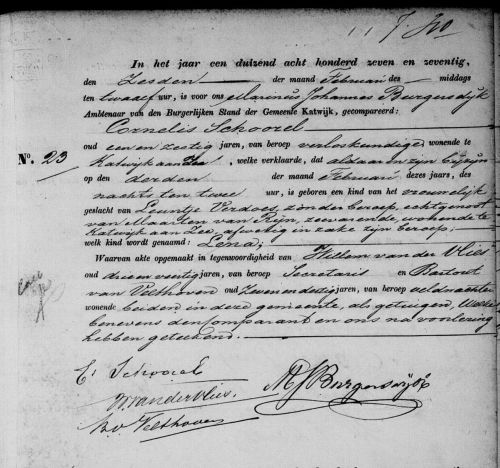 In het jaar een duizend acht honderd zeven en zeventig,
den Zesden der maand Februari des middags
ten twaalf ure, is voor ons Marinus Johannes Burgersdijk
Ambtenaar van den Burgerlijken Stand der Gemeente Katwijk, gecompareerd:
Cornelis Schoorel
oud een en zestig jaren, van beroep verloskundige wonende te
No. 23
Katwijk aan Zee, welke verklaarde, dat aldaar in zijn bijzijn
op den derden der maand Februari dezes jaars, des
nachts ten twee ure, is geboren een kind van het vrouwelijk
geslacht van Leuntje Verdoes, zonder beroep, echtgenoot
van van Rijn, zeevarende, wonende te
Katwijk aan Zee, afwezig in zake zijn beroep;
welk kind wordt genaamd: Lena;
Waarvan akte opgemaakt in tegenwoordigheid van Willem van der Vlies
oud drie en veertig jaren, van beroep Secretaris en
van Velthoven oud Zeven en dertig jaren, van beroep veldwachter
wonende beiden in deze gemeente, als getuigen, welke
benevens den comparant en ons na voorlezing
hebben geteekend.
C. Schoorel
W van der Vlies.
MJBurgersdijk
B. v Velthoven